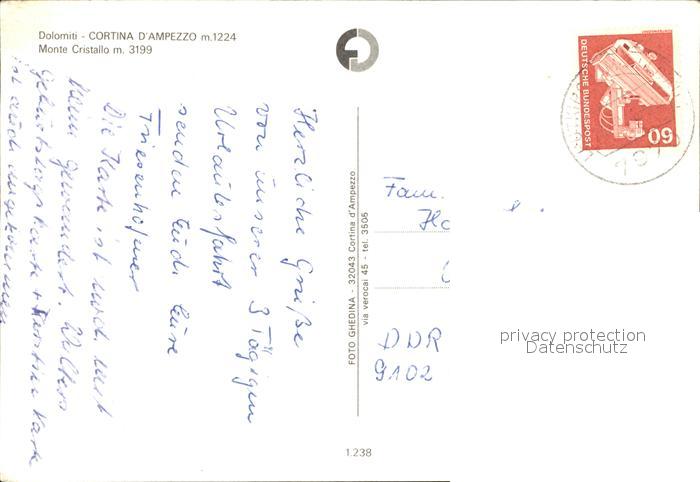 Dolomiti - CORTINA D'AMPEZZO m.1224
Monte Cristallo m. 3199
Herzliche Grüße
von unserer 3 Tägigen
Urlaubsfahrt
senden Euch Eure
Die Karte ist noch mit
heim gewandert.
Geburtstagskarte + Karte
ist auch angekommen
FOTO GHEDINA - 32043 Cortina d'Ampezzo
via verocai 45 - tel. 3505
1.238
DEUTSCHE BUNDESPOST
60
Fam.
DDR
9102
privacy protection
Datenschutz